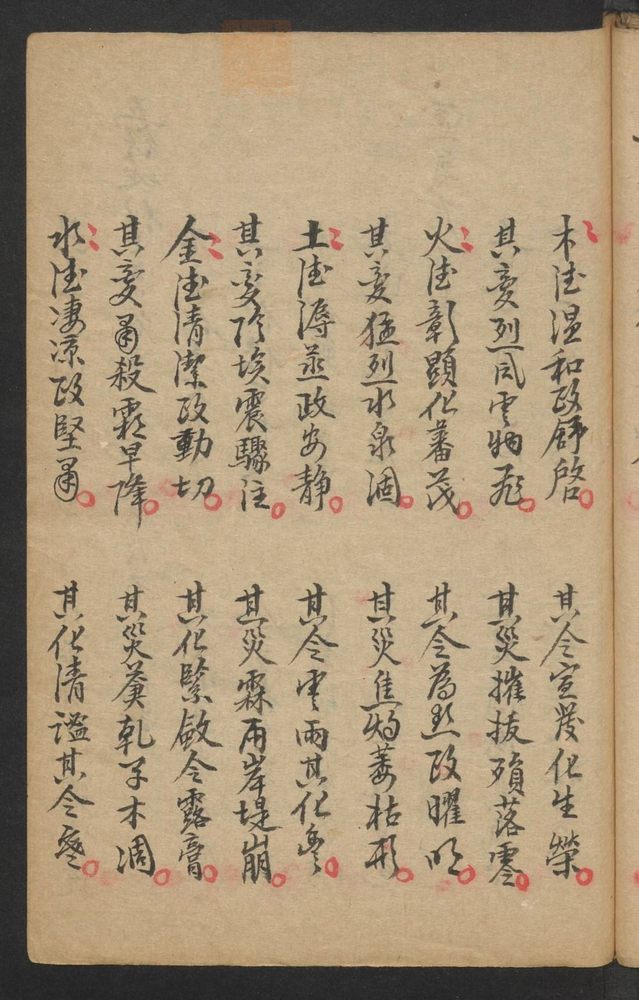 木德温和政舒啓　其令宣發化生榮
其變烈風雲物飛　其災摧拔殞落零
火德彰顯化蕃茂　其令為熱政曜明
其變猛烈水泉涸　其災焦灼萎枯形
土德溽蒸政安静　其令雲雨其化豐
其變阴埃震驟注　其災霖雨岸堤崩
金德清潔政動切　其化緊斂令露膏
其變肅殺霜早降　其災蒼乾草木凋
水德凄凉政堅肅　其化清謐其令寒